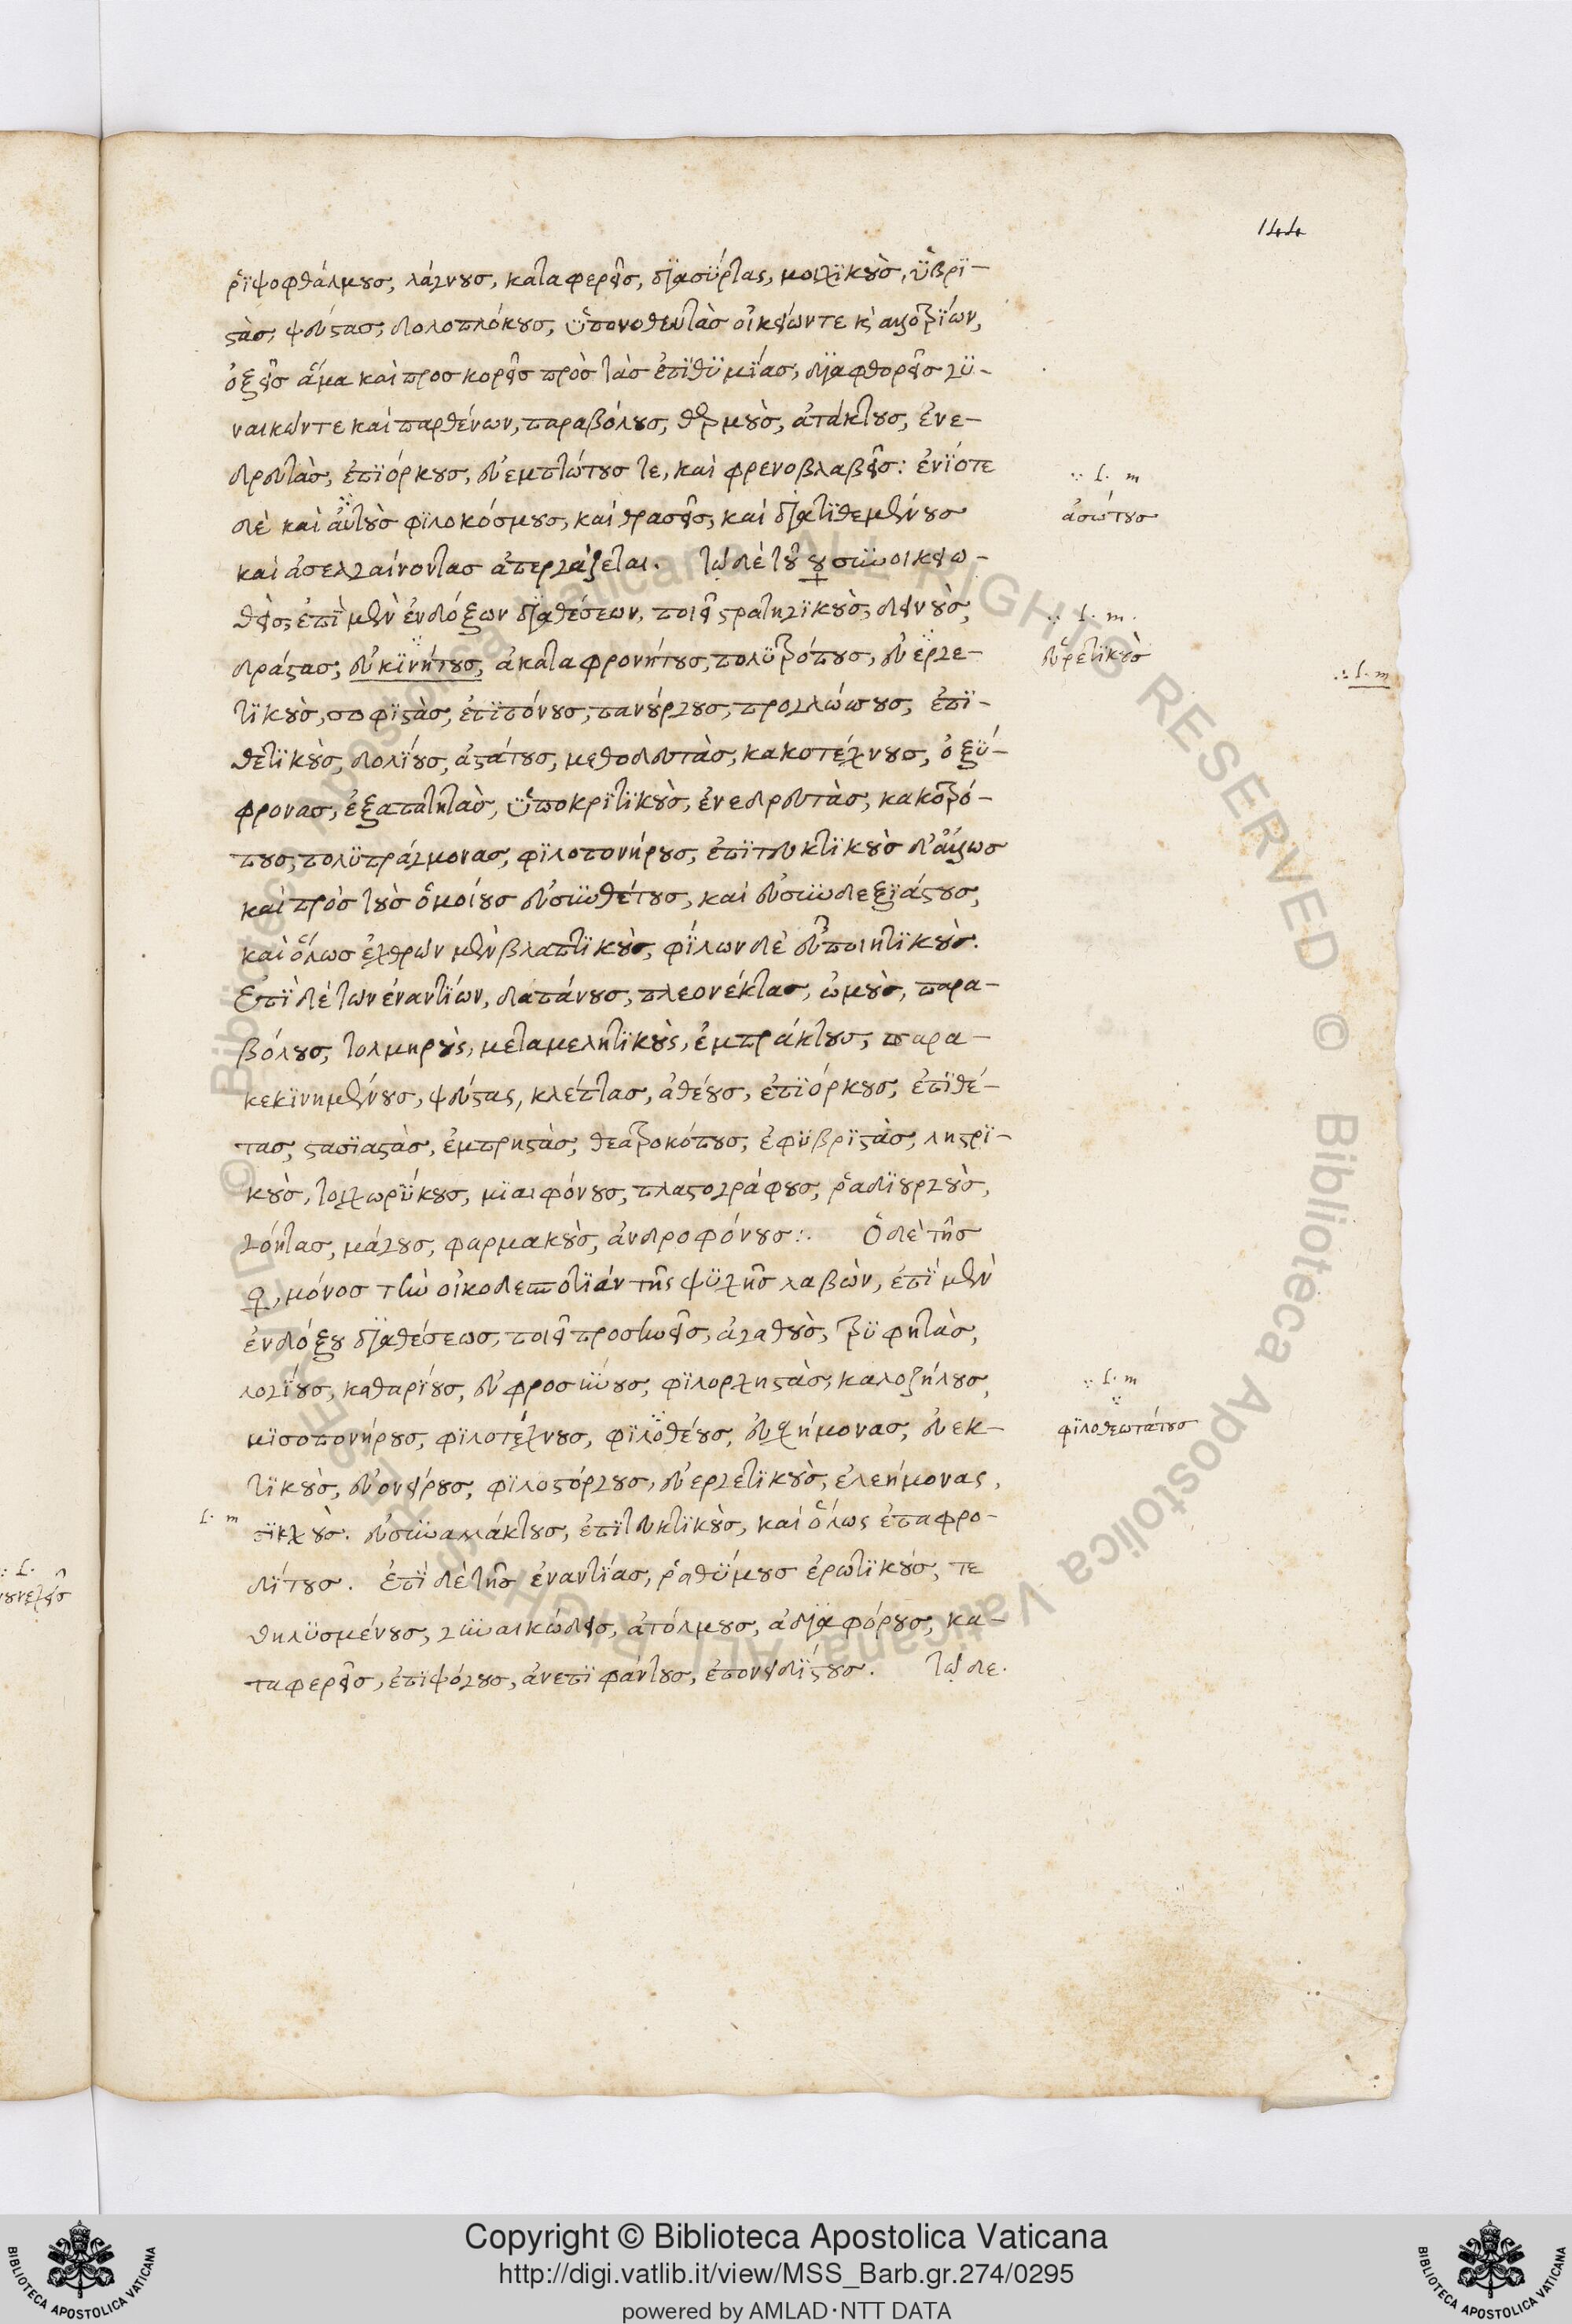 144
ῥϊψοφθάλμους, λάγνους, καταφερεῖς, δϊασΰρτας, μοιχϊκοὺς, ὑβρϊ-
στὰς, ψεύστας, δολοπλόκους, ὑπονοθευτὰς οἰκείων τε κ̀ αλλοτρΐων,
ὀξεῖς ἅμα καὶ προσκορεῖς πρὸς τὰς ἐπϊθϋμΐας, δϊαφθορεῖς γϋ-
ναικών τε καὶ παρθένων, παραβόλους, θερμοὺς, ἀτάκτους, ἐνε-
δρευτὰς, ἐπϊόρκους, εὐεμπτώτους τε, καὶ φρενοβλαβεῖς: ἐνϊότε
δὲ καὶ ἀυτοὺς φϊλοκόσμους, καὶ θρασεῖς, καὶ δϊατϊθεμένους
∵ L. m
ἀσώτους
καὶ ἀσελγαίνοντας ἀπεργάζεται. Τῷ δὲ τοῦ ☿ σϋνοικειω-
θεὶς, ἐπὶ μὲν ἐνδόξων δϊαθέσεων, ποιεῖ στρατηγϊκοὺς, δεινοὺς,
∵ L. m.
δράστας, εὐκϊνήτους, ἀκαταφρονήτους, πολϋτρόπους, εὑεργε-
εὑρετϊκοὺς
∴ L. m
τϊκοὺς, σοφϊστὰς, ἐπϊπόνους, πανούργους, προγλώσσους, ἐπϊ-
θετϊκοὺς, δολΐους, ἀστάτους, μεθοδευτὰς, κακοτέχνους, ὀξΰ-
φρονας, ἐξαπατητὰς, ὑποκρϊτϊκοὺς, ἐνεδρευτὰς, κακοτρό-
πους, πολϋπράγμονας, φϊλοπονήρους, ἐπϊτευκτϊκοὺς δ' ἄλλως
καὶ πρὸς τοὺς ὁμοίους εὐσϋνθέτους, καὶ εὐσϋνδεξϊάστους,
καὶ ὅλως ἐχθρών μὲν βλαπτϊκοὺς, φΐλων δὲ εὐποιητϊκοὺς.
Ἐπϊ δὲ των ἐναντΐων, δαπάνους, πλεονέκτας, ὠμοὺς, παρα-
βόλους, τολμηροὺς, μεταμελητϊκοὺς, ἐμπράκτους, παρα-
κεκϊνημένους, ψεύστας, κλέπτας, ἀθέους, ἐπϊόρκους, ἐπϊθέ-
τας, στασϊαστὰς, ἐμπρηστὰς, θεατροκόπους, ἐφϋβρϊστὰς, ληστρϊ-
κοὺς, τοιχωρΰκους, μϊαιφόνους, πλαστογράφους, ῥαδϊουργοὺς,
γόητας, μάγους, φαρμακοὺς, ἀνδροφόνους:. Ὁ δὲ τῆς
♀, μόνος τὴν οἰκοδεσποτϊάν τῆς ψϋχῆς λαβὼν, ἐπϊ μὲν
ἐνδόξου δϊαθέσεως, ποιεῖ προσηνεῖς, ἀγαθοὺς, τρϋφητὰς,
λογΐους, καθαρΐους, εὐφροσΰνους, φϊλορχηστὰς, καλοζήλους,
∵ L. m
μϊσοπονήρους, φϊλοτέχνους, φϊλοθέους, εὐσχήμονας, εὐεκ-
∵
φϊλοθεωτάτους
τϊκοὺς, εὐονείρους, φϊλοστόργους, εὐεργετϊκοὺς, ἐλεήμονας,
L. m
σϊκχοὺς. εὐσϋναλλάκτους, ἐπϊτευκτϊκοὺς, καὶ ὅλως ἐπαφρο-
δίτους. Ἐπϊ δὲ τῆς ἐναντΐας, ῥαθΰμους ἐρωτϊκοὺς, τε
θηλϋσμένους, γϋναικώδεις, ἀτόλμους, ἀδϊαφόρους, κα-
ταφερεῖς, ἐπϊψόγους, ἀνεπϊφάντους, ἐπονειδΐστους. Τῷ δε.
Copyright © Biblioteca Apostolica Vaticana
http://digi.vatlib.it/view/MSS_Barb.gr.274/0295
powered by AMLAD·NTT DATA